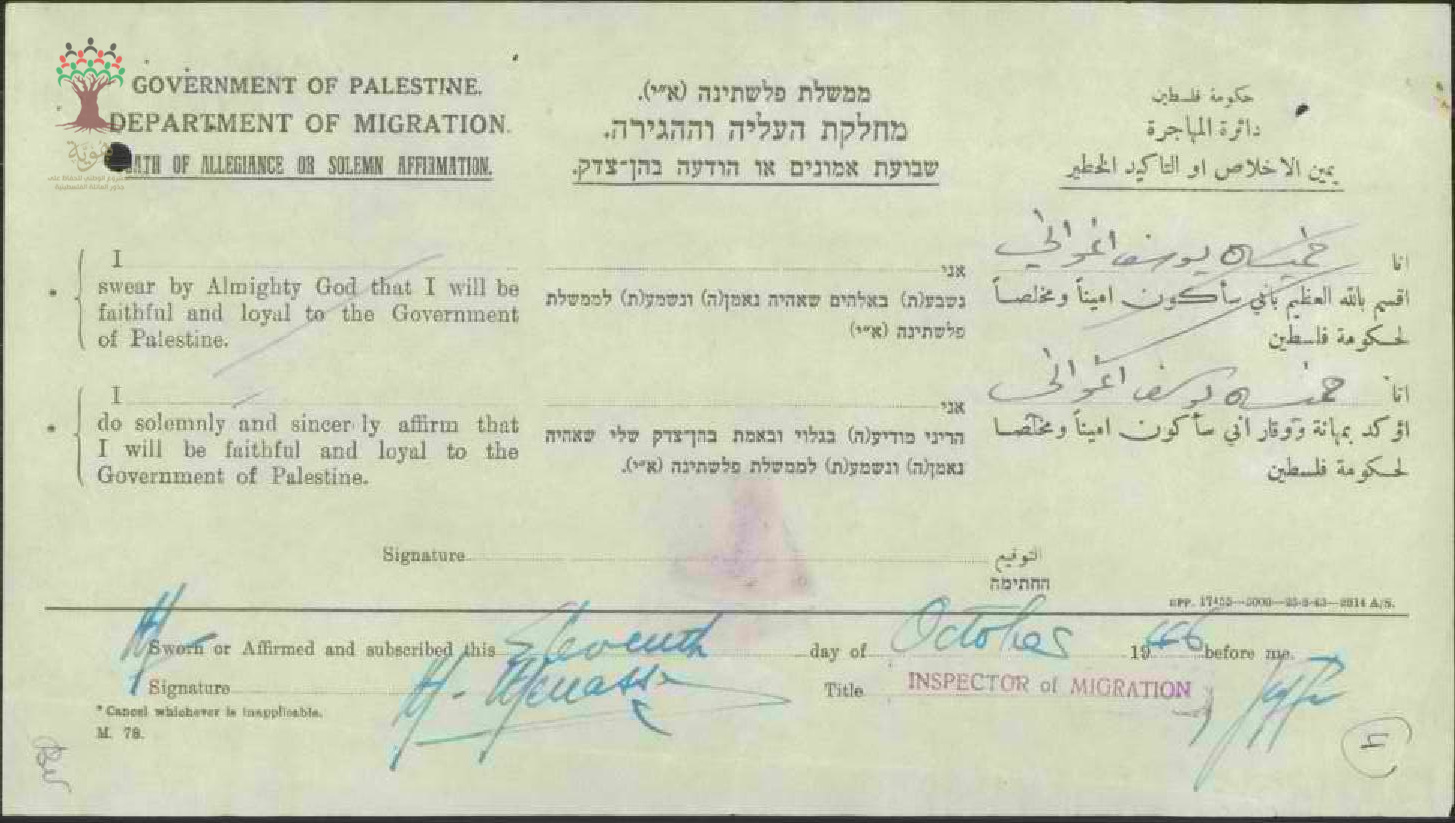 GOVERNMENT OF PALESTINE.
DEPARTMENT OF MIGRATION.
OATH OF ALLEGIANCE OR SOLEMN AFFIRMATION.
ממשלת פלשתינה (א״י).
מחלקת העליה וההגירה.
שבועת אמונים או הודעה בהן־צדק.
حكومة فلسطين
دائرة المهاجرة
يمين الاخلاص او التاكيد الخطير
I
swear by Almighty God that I will be
faithful and loyal to the Government
of Palestine.
אני
נשבע(ת) באלהים שאהיה נאמן(ה) ונשמע(ת) לממשלת
פלשתינה (א״י)
انا يوسف
اقسم بالله العظيم بأني سأكون اميناً ومخلصاً
لحكومة فلسطين
I
do solemnly and sincer ly affirm that
I will be faithful and loyal to the
Government of Palestine.
אני
הריני מודיע(ה) בגלוי ובאמת בהן־צדק שלי שאהיה
נאמן(ה) ונשמע(ת) לממשלת פלשתינה (א״י).
انا يوسف
اؤكد بمهانة ووقار اني سأكون اميناً ومخلصا
لحكومة فلسطين
Signature التوقيع
החתימה
GPP. 17455—5000—25-8-43—2814 A/S.
Sworn or Affirmed and subscribed this Eleventh day of October 1946 before me.
Signature Title INSPECTOR of MIGRATION
* Cancel whichever is inapplicable.
M. 78.